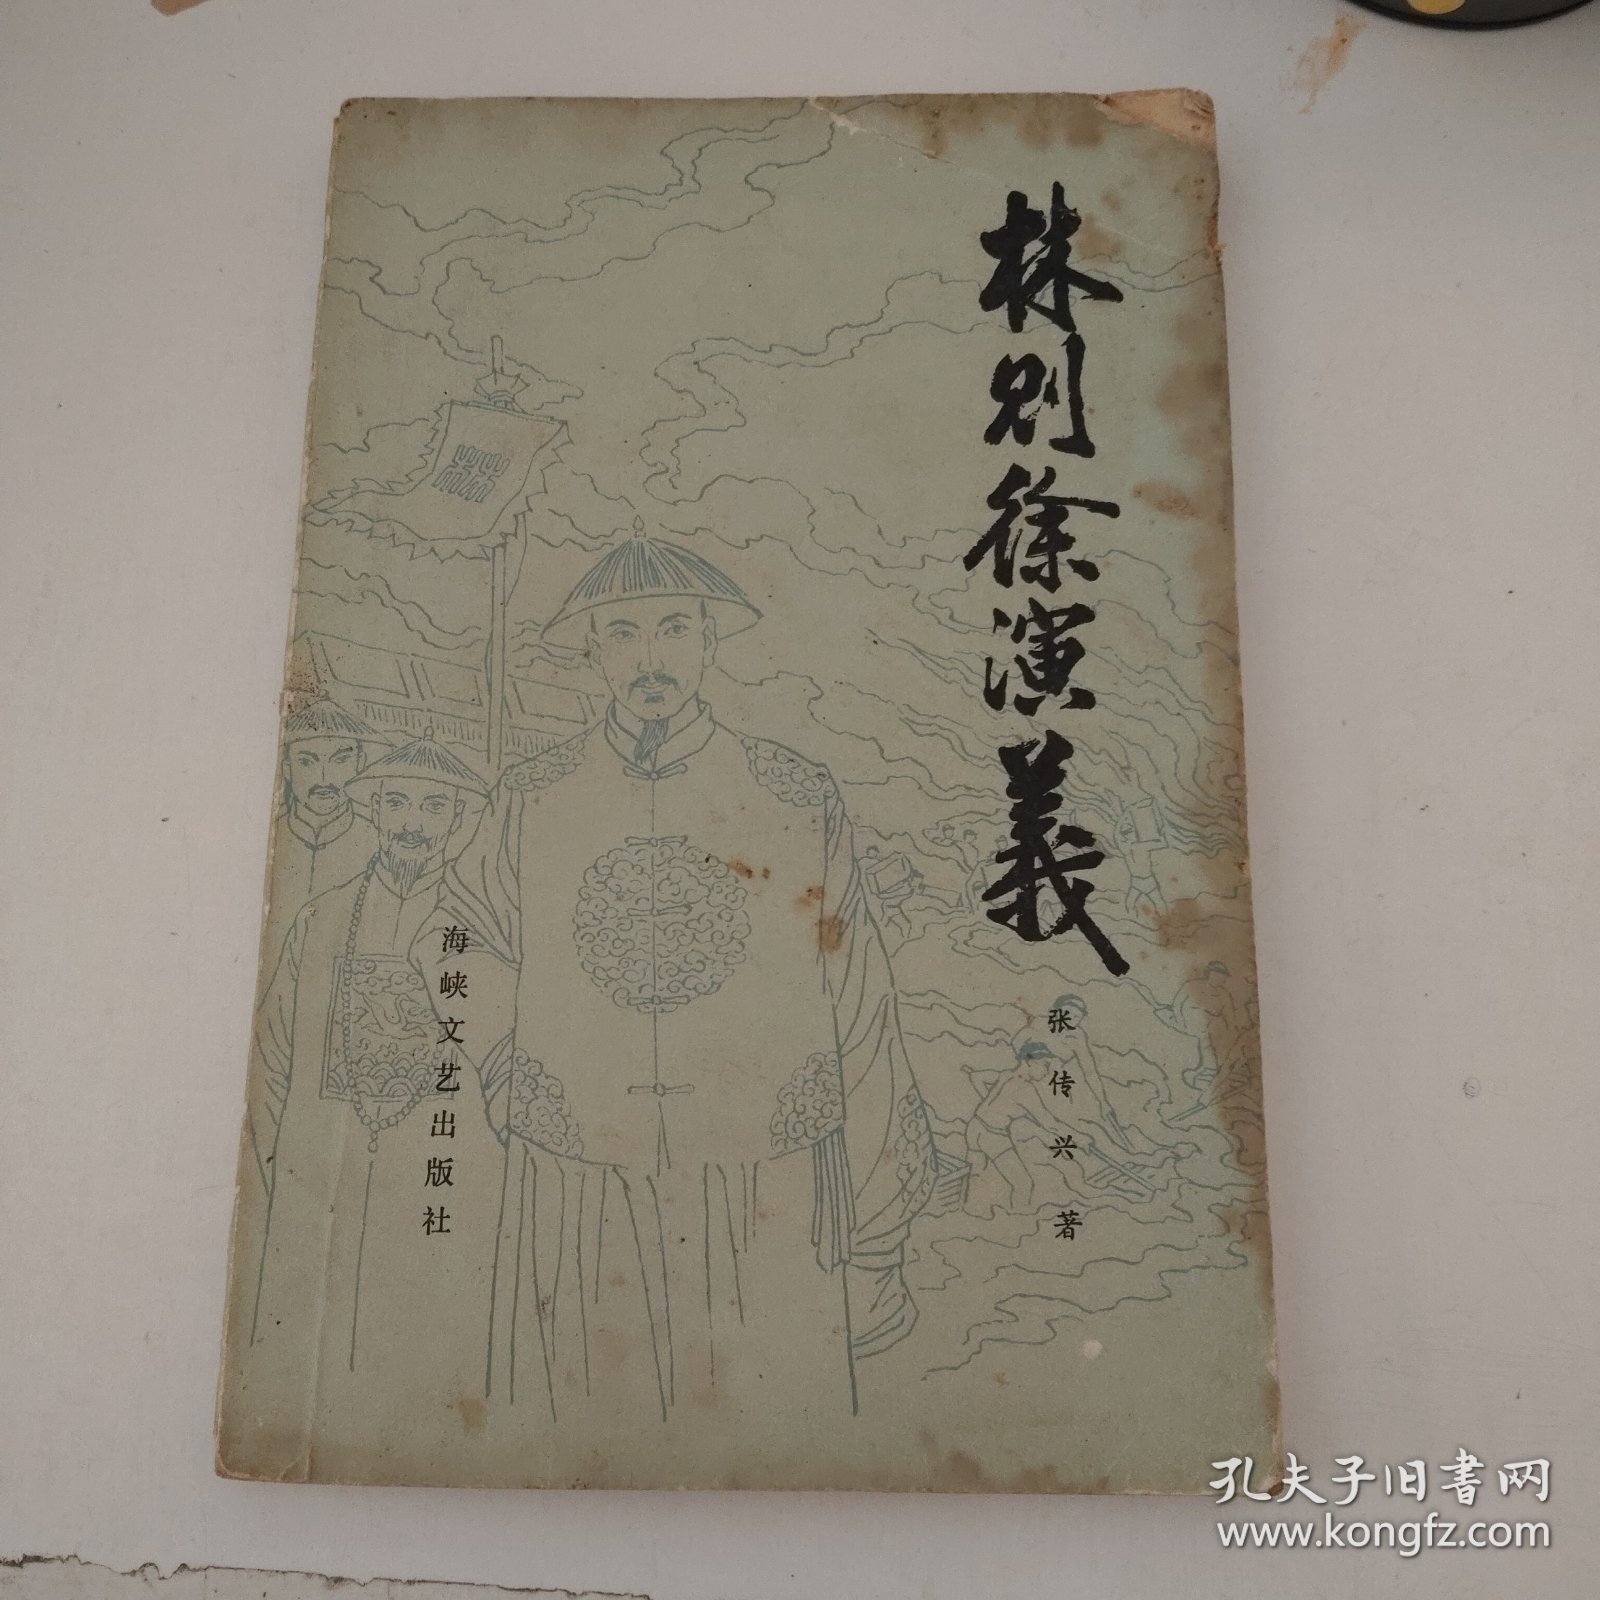 林则徐演義
张传兴 著
海峡文艺出版社
孔夫子旧書网
www.kongfz.com